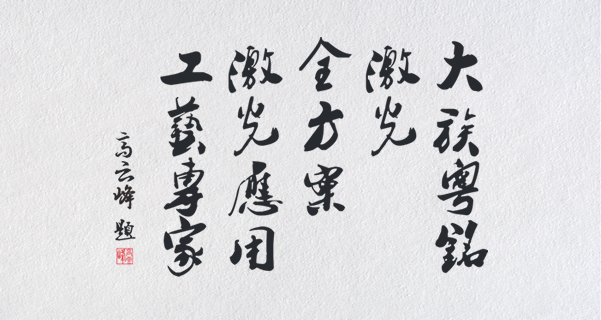 大族粤銘
激光
全方案
激光應用
工藝專家
高云峰 題